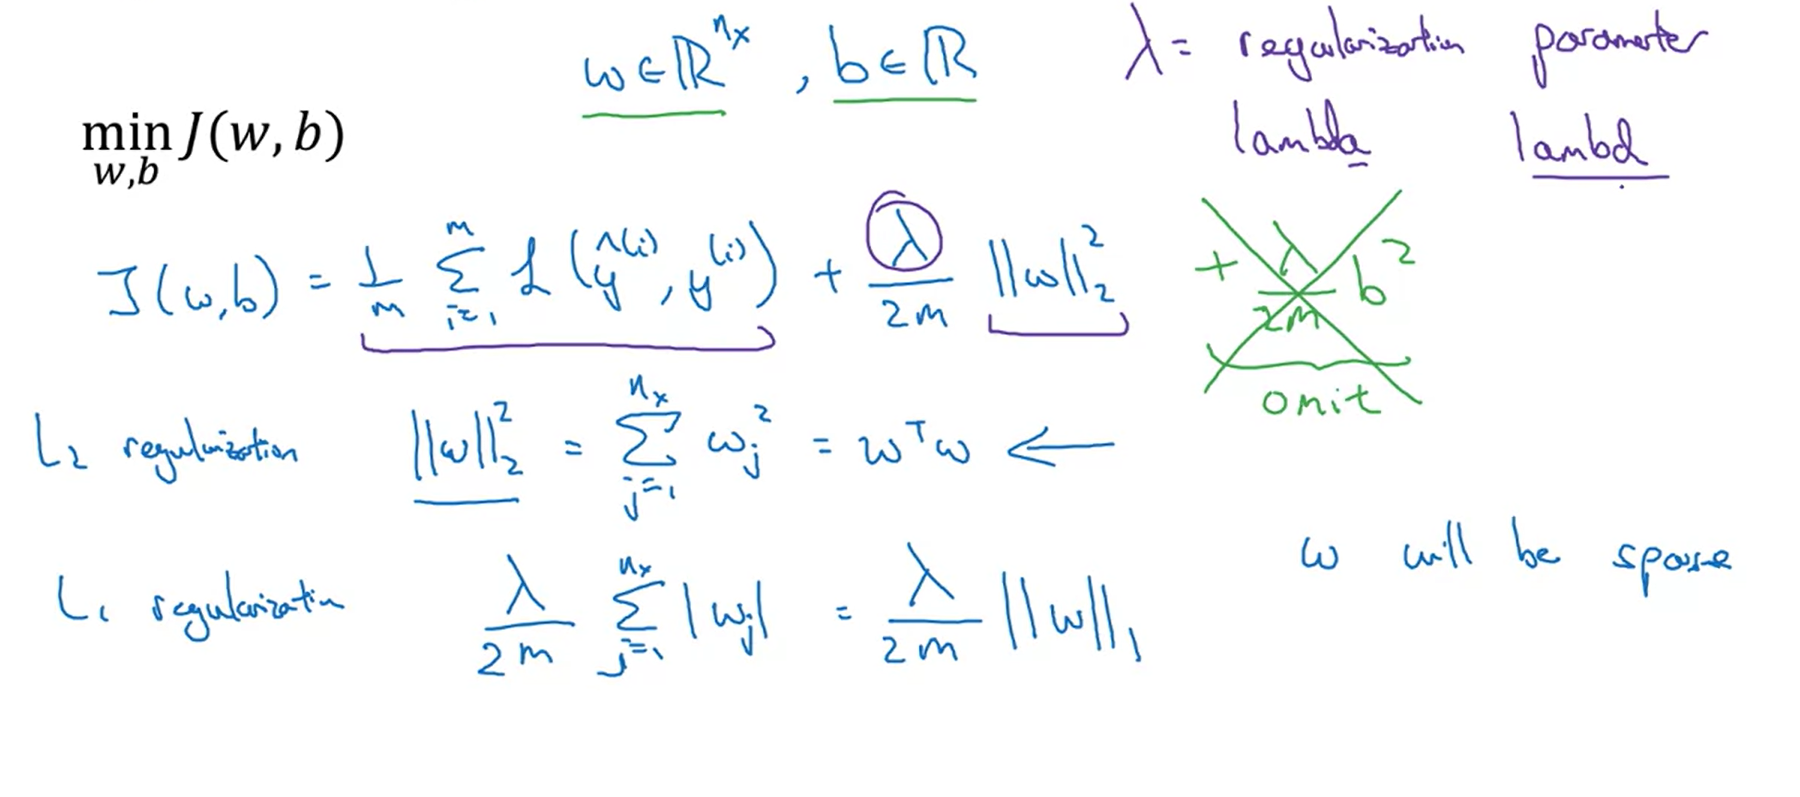 w ∈ ℝ^{n_x}, b ∈ ℝ λ = regularization parameter
lambda lambd
min_{w,b} J(w, b)
J(w,b) = 1/m Σ_{i=1}^{m} ℒ(ŷ^{(i)}, y^{(i)}) + λ/2m ||w||_2^2 + λ/2m b^2
omit
L_2 regularization ||w||_2^2 = Σ_{j=1}^{n_x} w_j^2 = w^T w ←
w will be sparse
L_1 regularization λ/2m Σ_{j=1}^{n_x} |w_j| = λ/2m ||w||_1